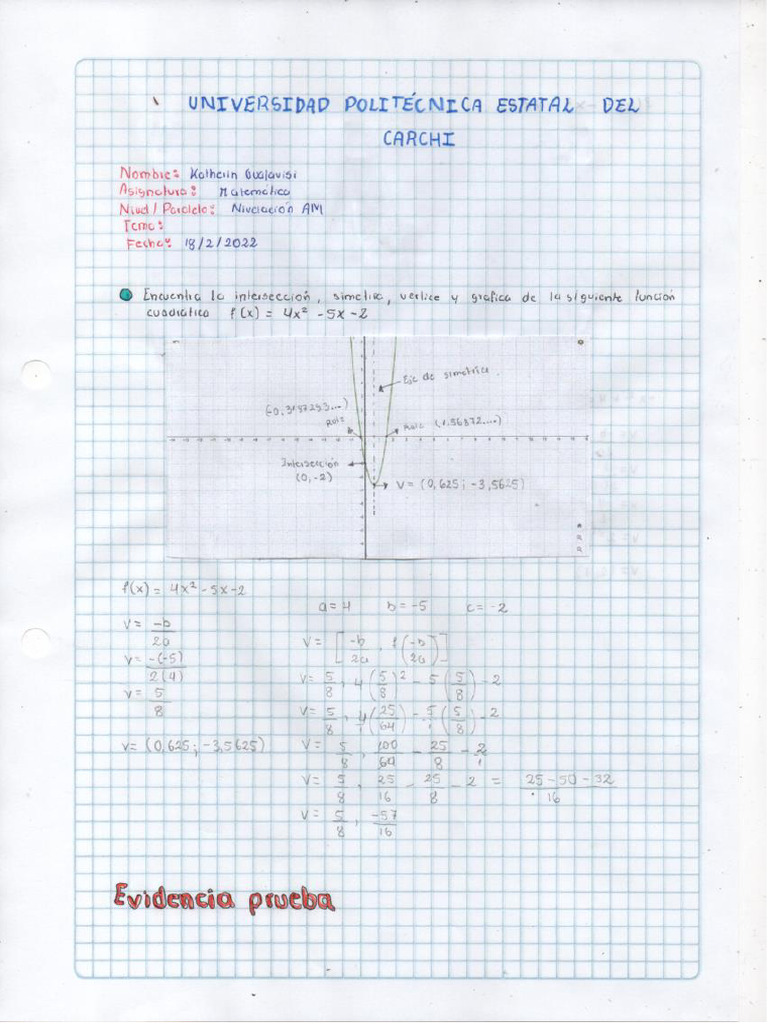 UNIVERSIDAD POLITÉCNICA ESTATAL DEL
CARCHI
Nombre: Katherin Gualavisi
Asignatura: Matemática
Nivel / Paralelo: Nivelación AM
Tema:
Fecha: 18/2/2022
Encuentra la intersección, simetría, vertice y grafica de la siguiente función
cuadratica f(x) = 4x² - 5x - 2
Eje de simetria.
(-0,3187293...)
Raiz
Raiz (1.56872....)
Intersección
(0,-2)
V = (0,625; -3,5625)
f(x) = 4x² - 5x - 2
a = 4 b = -5 c = -2
V = -b/2a
V = [-b/2a, f(-b/2a)]
V = -(-5)/2(4)
V = 5/8, 4(5/8)² - 5(5/8) - 2
V = 5/8
V = 5/8, 4/1(25/64) - 5/1(5/8) - 2
V = (0,625; -3,5625)
V = 5/8, 100/64 - 25/8 - 2/1
V = 5/8, 25/16 - 25/8 - 2 = 25-50-32/16
V = 5/8, -57/16
Evidencia prueba